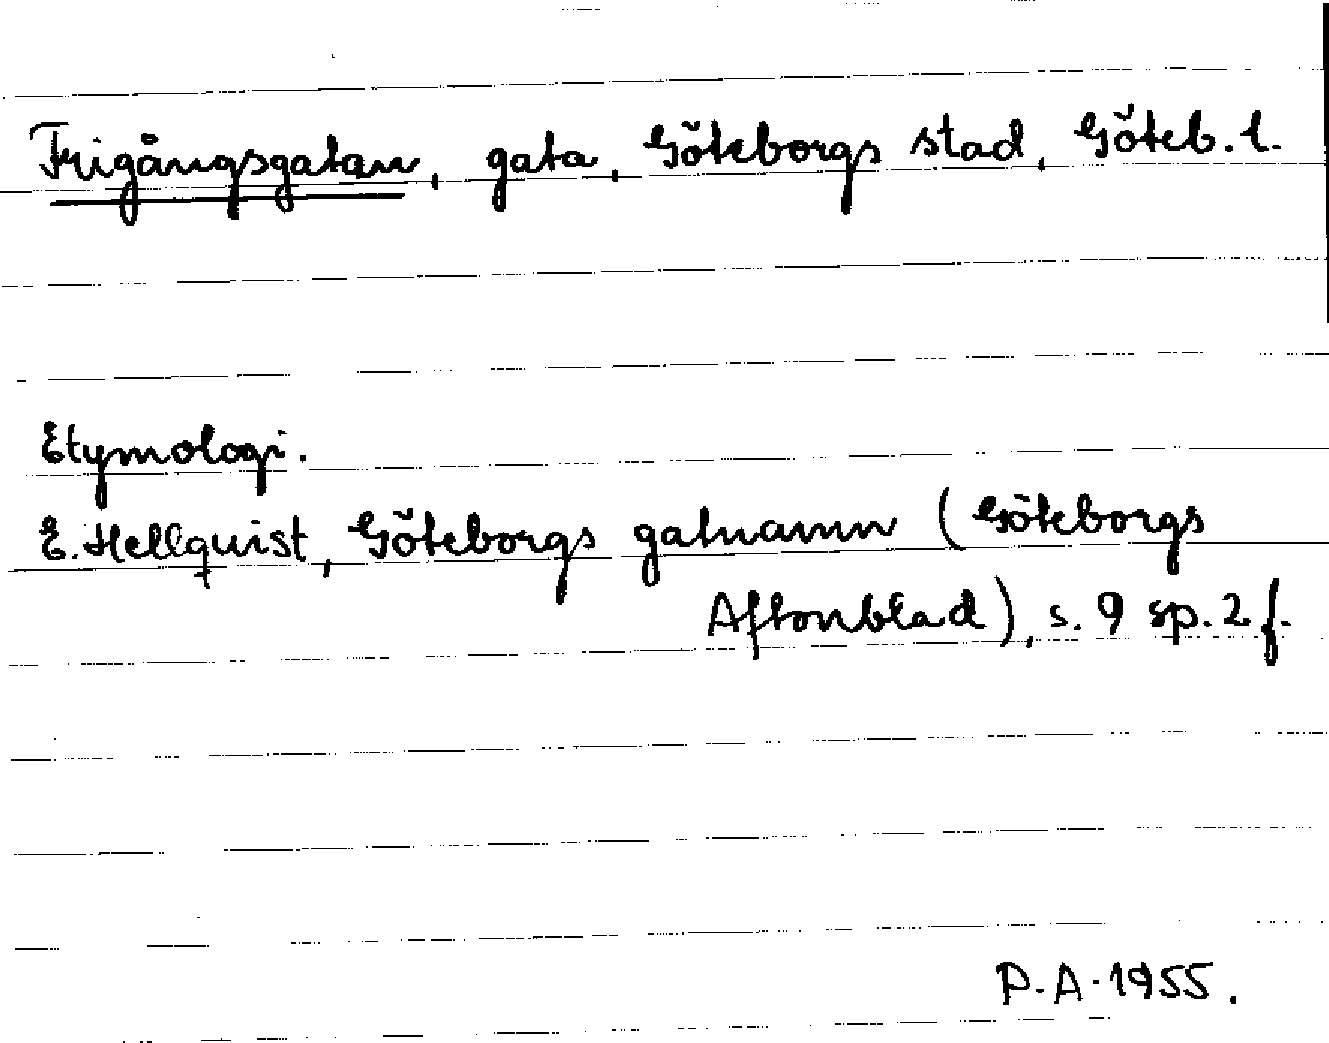 Frigångsgatan, gata, Göteborgs stad, Göteb. l.
Etymologi.
E. Hellquist, Göteborgs gatnamn (Göteborgs
Aftonblad), s. 9 sp. 2 f.
P. A. 1955.